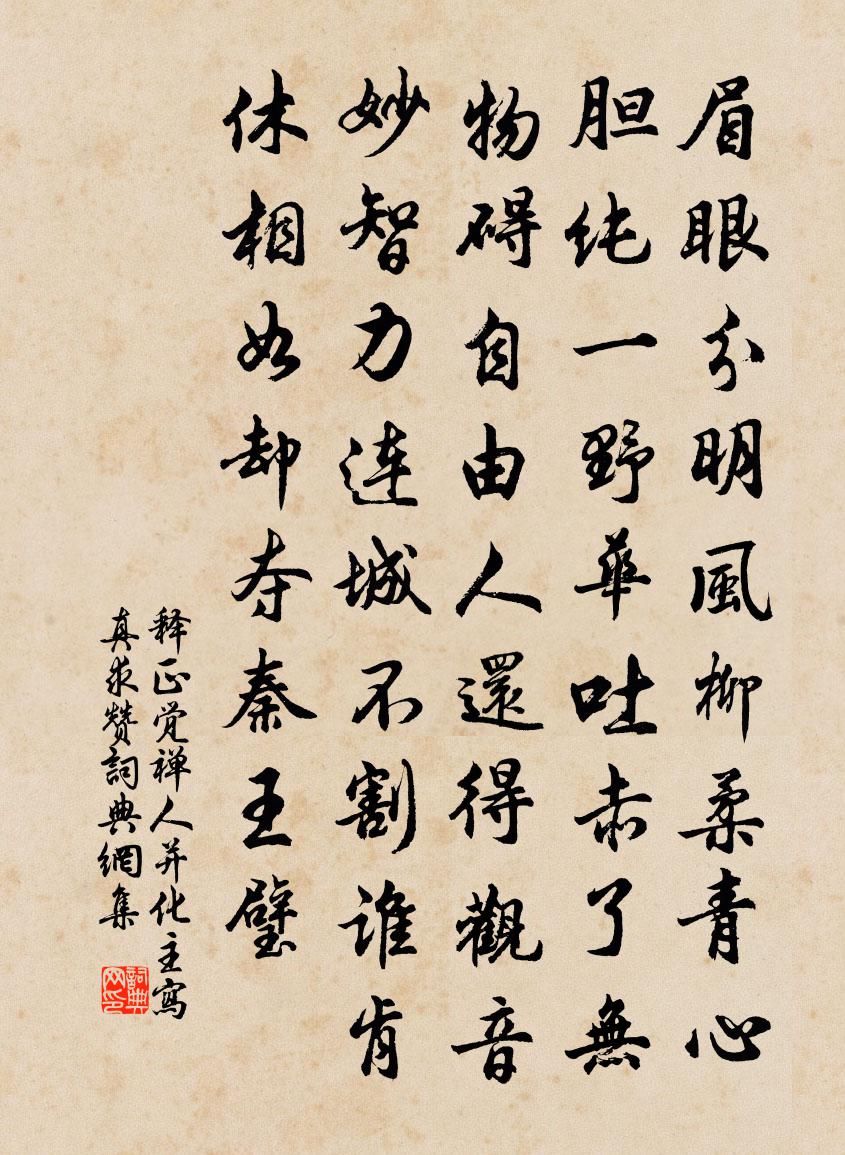 眉眼分明風柳柔青心
胆纯一野華吐赤了無
物碍自由人還得觀音
妙智力连城不割谁肯
休相如却夺秦王璧
释正觉禅人并化主寫
真求赞詞典網集
詞典网印